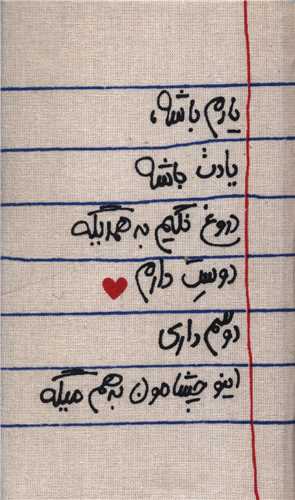 یادم باشه،
یادت باشه
دروغ نگیم به همدیگه
دوسِت دارم
دوسَم داری
اینو چشامون به هم میگه